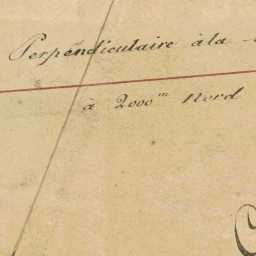 Perpendiculaire à la
à 2000m Nord
C